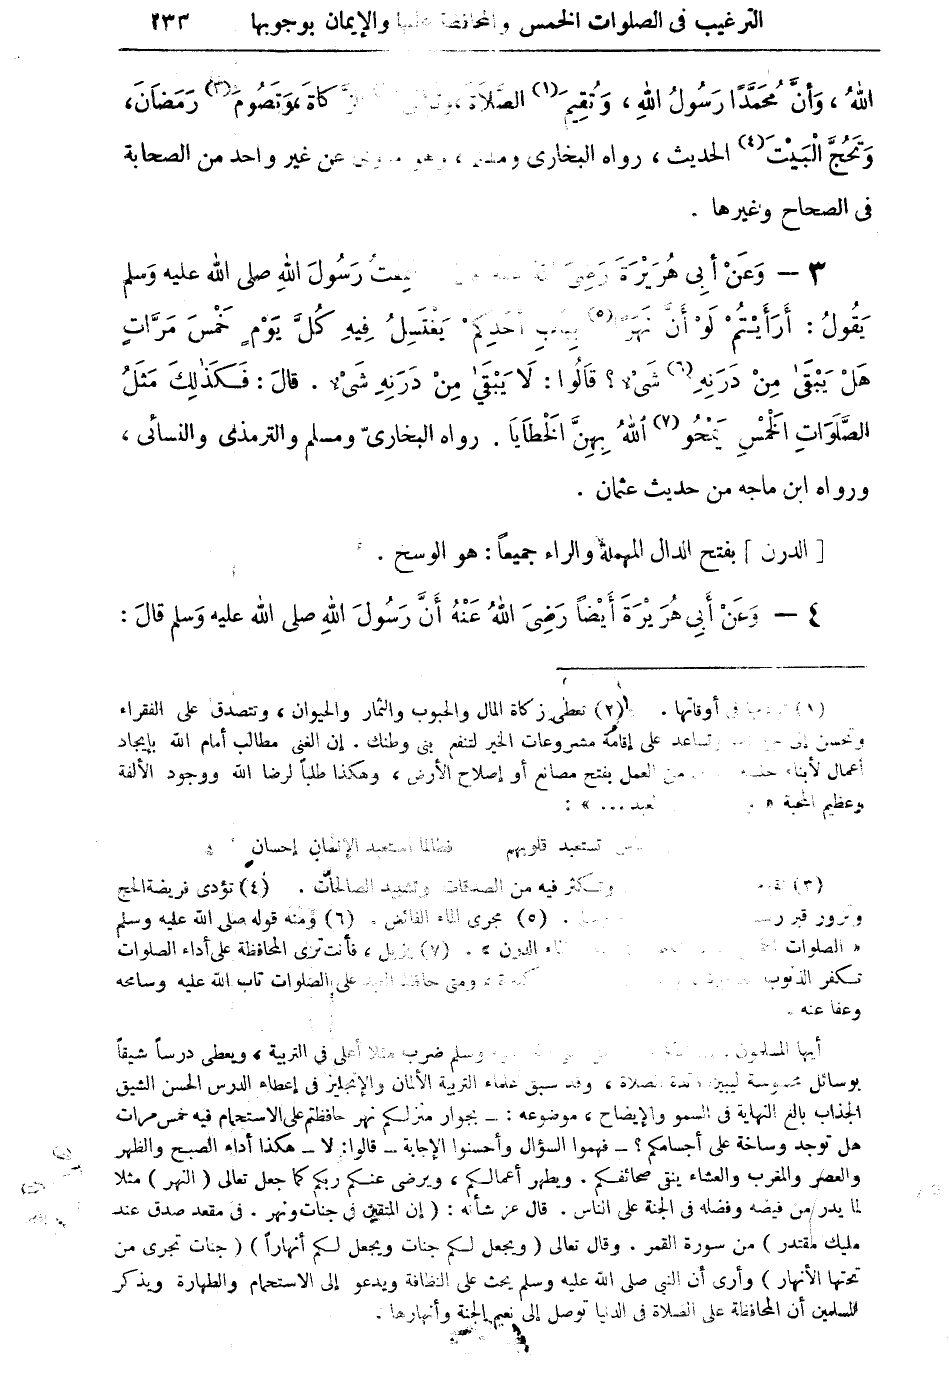 الترغيب فى الصلوات الخمس والمحافظة عليها والإيمان بوجوبها ٢٣٣
اللهُ ، وَأَنَّ مُحَمَّدًا رَسُولُ اللهِ ، وَتُقِيمَ (١) الصَّلَاةَ ، الزَّكَاةَ ، وَتَصُومَ (٣) رَمَضَانَ ،
وَتَحُجَّ الْبَيْتَ (٤) الحديث ، رواه البخارى ومسلم ، وهو عن غير واحد من الصحابة
فى الصحاح وغيرها .
٣ — وَعَنْ أَبِى هُرَيْرَةَ رَضِىَ سَمِعتُ رَسُولَ اللهِ صلى الله عليه وَسلم
يَقُولُ : أَرَأَيْتُمْ لَوْ أَنَّ نَهَرًا (٥) بِبَابِ أَحَدِكُمْ يَغْتَسِلُ فِيهِ كُلَّ يَوْمٍ خَمْسَ مَرَّاتٍ
هَلْ يَبْقَىٰ مِنْ دَرَنِهِ (٦) شَىْءٌ ؟ قَالُوا : لَا يَبْقَىٰ مِنْ دَرَنِهِ شَىْءٌ . قالَ : فَكَذَٰلِكَ مَثَلُ
الصَّلَوَاتِ الْخَمْسِ يَمْحُو (٧) اللهُ بِهِنَّ الْخَطَايَا . رواه البخارىّ ومسلم والترمذى والنسأئى ،
ورواه ابن ماجه من حديث عثمان .
[ الدرن ] بفتح الدال المهملة والراء جميعاً : هو الوسخ .
٤ — وَعَنْ أَبِى هُرَيْرَةَ أَيْضاً رَضِىَ اللهُ عَنْهُ أَنَّ رَسُولَ اللهِ صلى الله عليه وَسلم قالَ :
(١) فى أوقاتها . (٢) تعطى زكاة المال والحبوب والثمار والحيوان ، وتتصدق على الفقراء
وتحسن إلى وتساعد على إقامة مشروعات الخير لتنفع بنى وطنك . إن الغنى مطالب أمام الله بإيجاد
أعمال لأبناء من العمل بفتح مصانع أو إصلاح الأرض ، وهكذا طلباً لرضا الله ووجود الألفة
وعظيم المحبة « ... » :
تستعبد قلوبهم فطالما استعبد الإنسان إحسان
(٣) وتكثر فيه من الصدقات وتشييد الصالحات . (٤) تؤدى فريضة الحج
وتزور قبر . (٥) مجرى الماء الفائض . (٦) ومنه قوله صلى الله عليه وسلم
« الصلوات الدرن » . (٧) يزيل ، فأنت ترى المحافظة على أداء الصلوات
تكفر الذنوب ، ومتى حافظ العبد على الصلوات تاب الله عليه وسامحه
وعفا عنه .
أيها المسلمون وسلم ضرب مثلا أعلى فى التربية ، ويعطى درساً شيقاً
بوسائل محسوسة ليبين فائدة الصلاة ، وقد سبق علماء التربية الألمان والإنجليز فى إعطاء الدرس الحسن الشيق
الجذاب بالغ النهاية فى السمو والإيضاح ، موضوعه : ــ بجوار منزلكم نهر حافظتم على الاستحمام فيه خمس مرات
هل توجد وساخة على أجسامكم ؟ ــ فهموا السؤال وأحسنوا الإجابة ــ قالوا : لا ــ هكذا أداء الصبح والظهر
والعصر والمغرب والعشاء ينقى صحائفكم . ويطهر أعمالكم ، ويرضى عنكم ربكم كما جعل تعالى ( النهر ) مثلا
لما يدر من فيضه وفضله فى الجنة على الناس . قال عز شأنه : ( إن المتقين فى جنات ونهر . فى مقعد صدق عند
مليك مقتدر ) من سورة القمر . وقال تعالى ( ويجعل لكم جنات ويجعل لكم أنهاراً ) ( جنات تجرى من
تحتها الأنهار ) وأرى أن النبي صلى الله عليه وسلم يحث على النظافة ويدعو إلى الاستحمام والطهارة ويذكر
المسلمين أن المحافظة على الصلاة فى الدنيا توصل إلى نعيم الجنة وأنهارها .